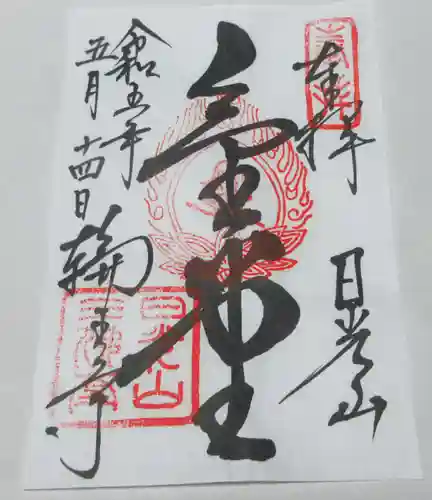 奉拝
日光山
金堂
令和五年
五月十四日
輪王寺
日光山
三佛堂